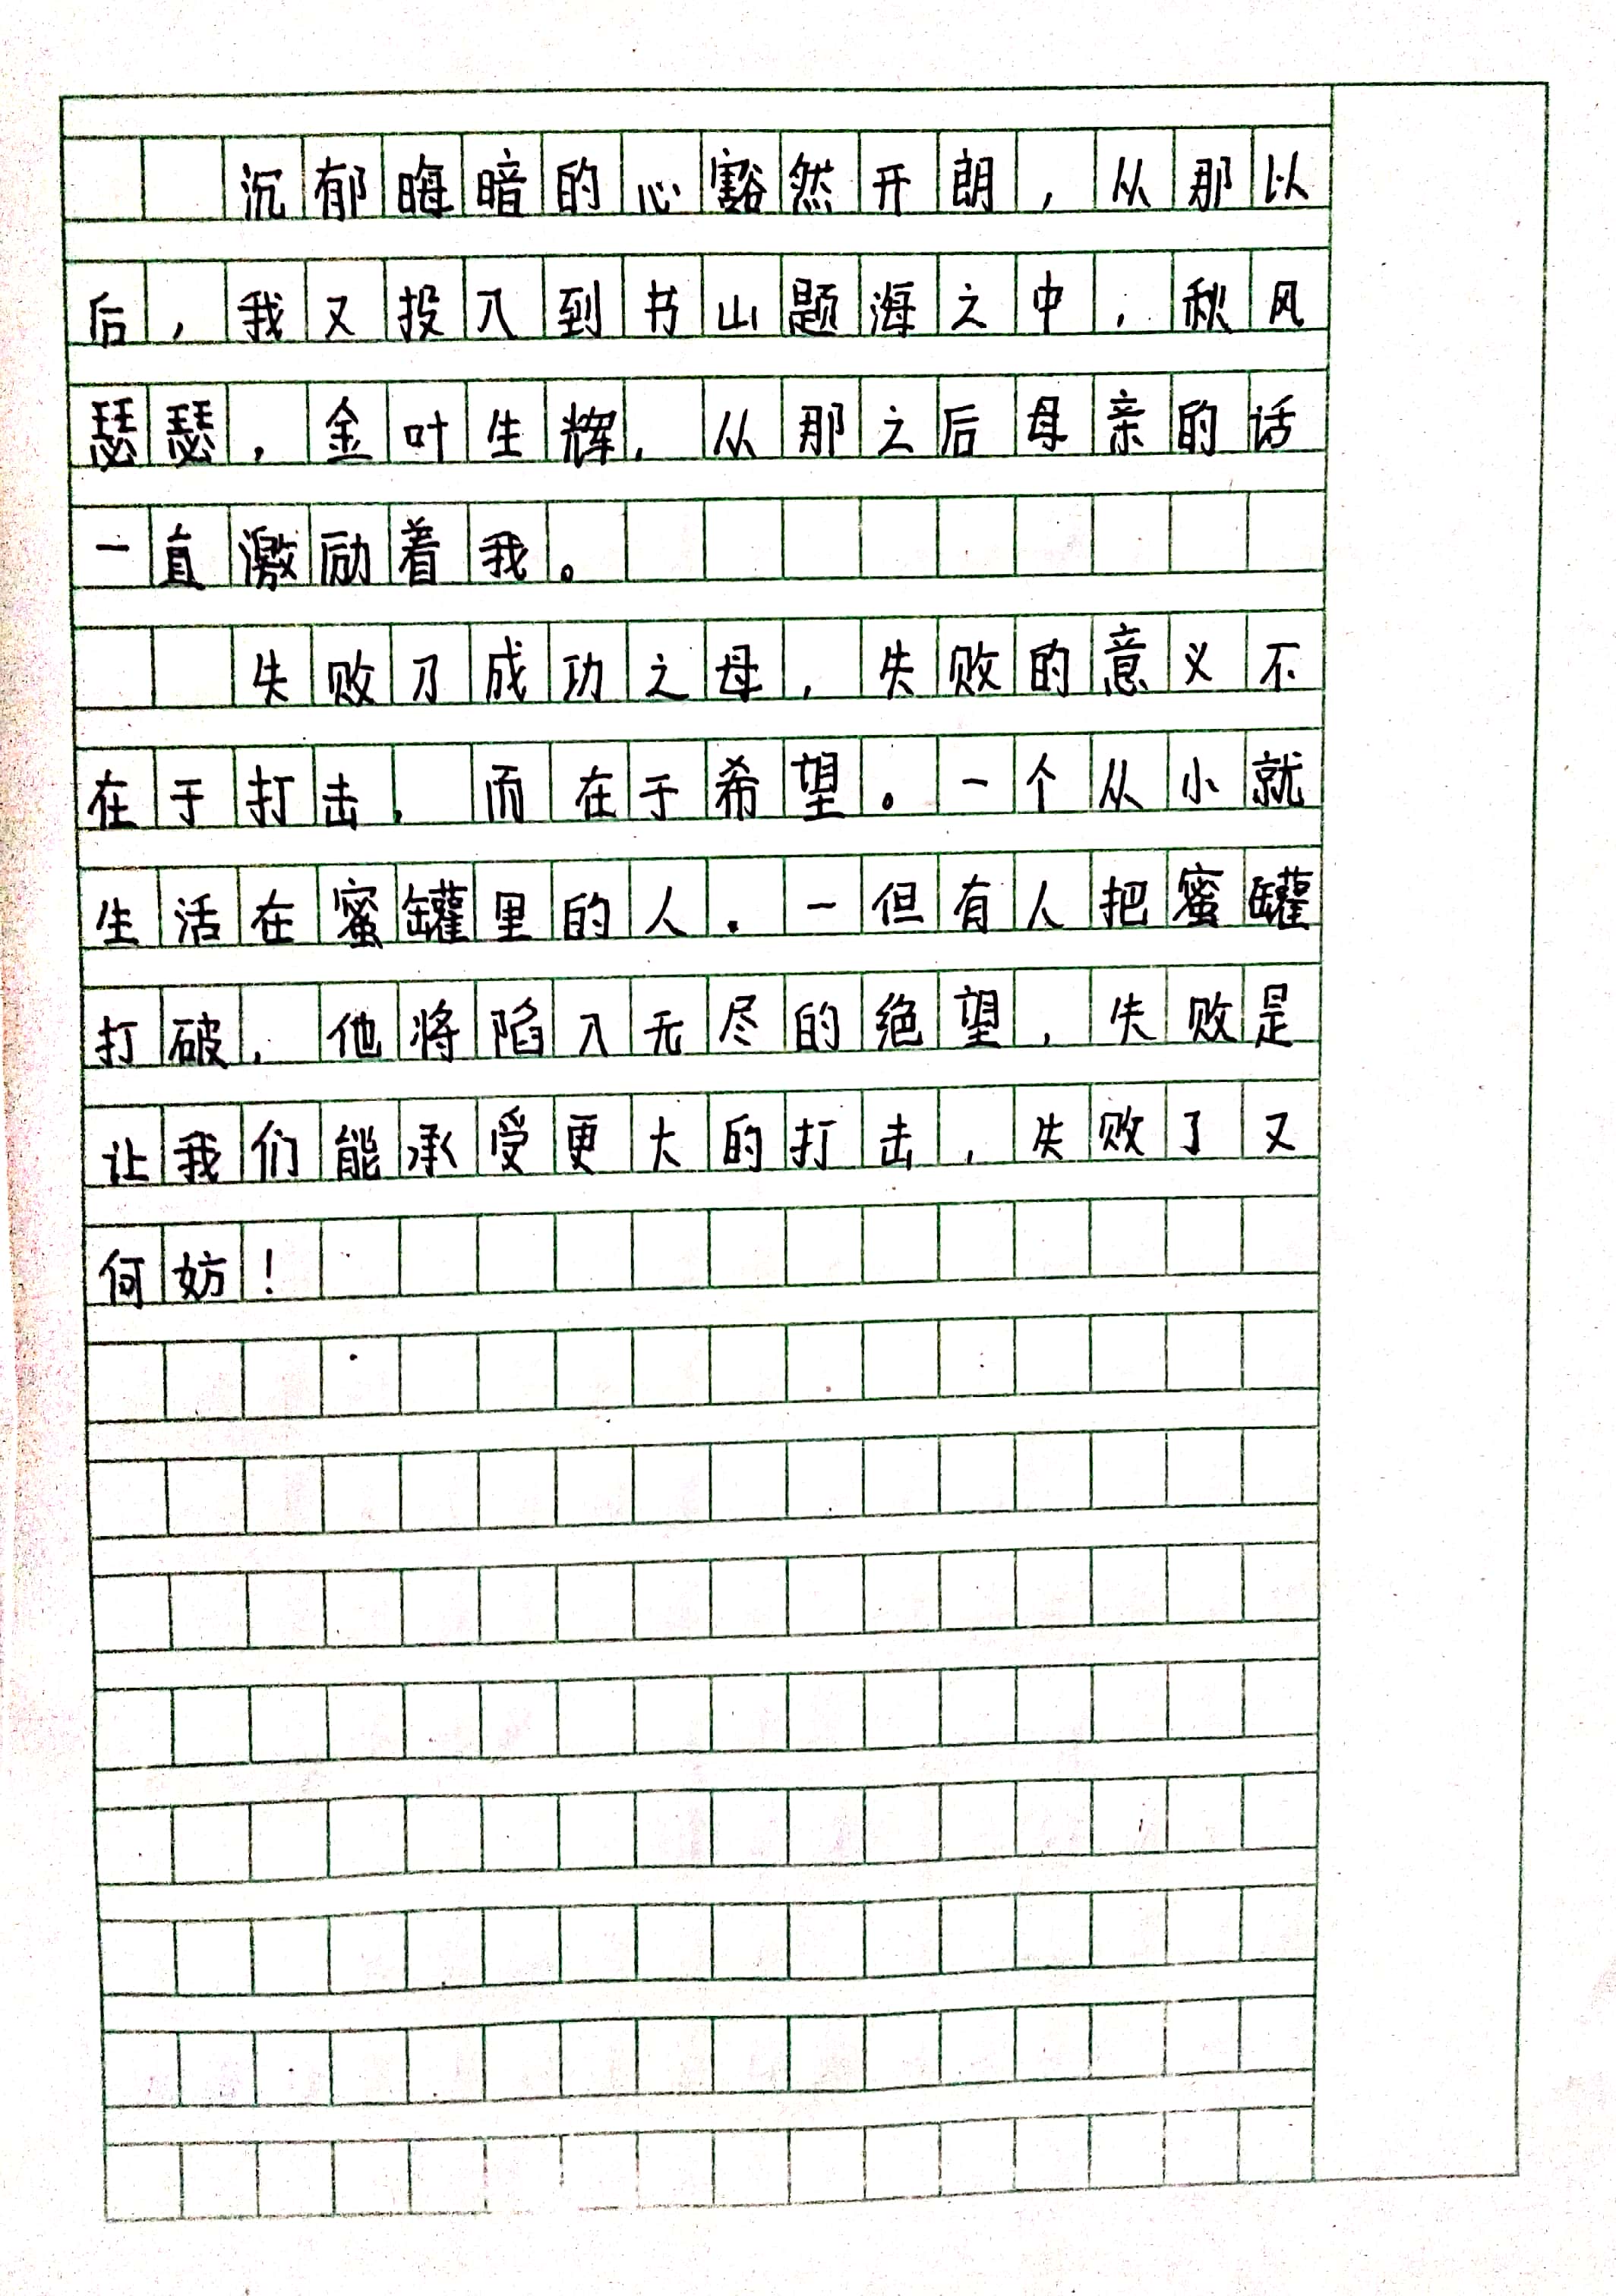 沉郁晦暗的心豁然开朗，从那以
后，我又投入到书山题海之中，秋风
瑟瑟，金叶生辉，从那之后母亲的话
一直激励着我。
失败乃成功之母，失败的意义不
在于打击，而在于希望。一个从小就
生活在蜜罐里的人，一但有人把蜜罐
打破，他将陷入无尽的绝望，失败是
让我们能承受更大的打击，失败了又
何妨！